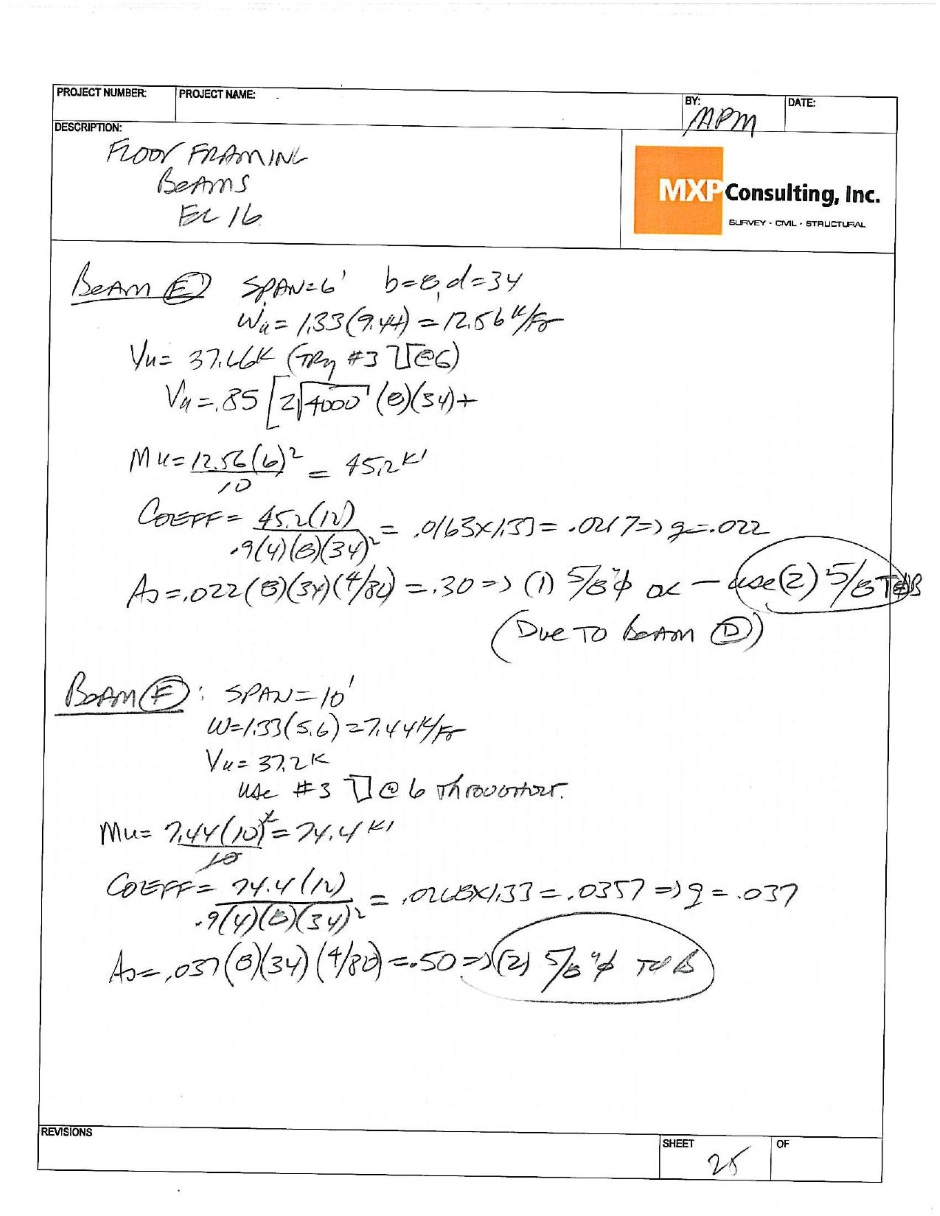 PROJECT NUMBER: PROJECT NAME: BY: DATE:
MPM
DESCRIPTION:
FLOOR FRAMING
BEAMS
EL 16
MXP Consulting, Inc.
SURVEY - CIVIL - STRUCTURAL
BEAM (E) SPAN=6' b=8, d=34
Wu = 1.33(9.44) = 12.56 K/Ft
Vu = 37.66K (TRY #3 @6)
Vu = .85 [2√4000 (8)(34)+
Mu = 12.56(6)² / 10 = 45.2 K'
COEFF = 45.2(12) / .9(4)(8)(34)² = .0163x1.33 = .0217 => q = .022
As = .022(8)(34)(4/60) = .30 => (1) 5/8"φ OK - use (2) 5/8 T&B
(DUE TO BEAM (D))
BEAM (F): SPAN=10'
W=1.33(5.6)=7.44K/Ft
Vu = 37.2K
USE #3 @ 6 THROUGHOUT.
Mu = 7.44(10)² / 10 = 74.4 K'
COEFF = 74.4(12) / .9(4)(8)(34)² = .0268x1.33 = .0357 => q = .037
As = .037(8)(34)(4/80) = .50 => (2) 5/8"φ T&B
REVISIONS
SHEET 25 OF